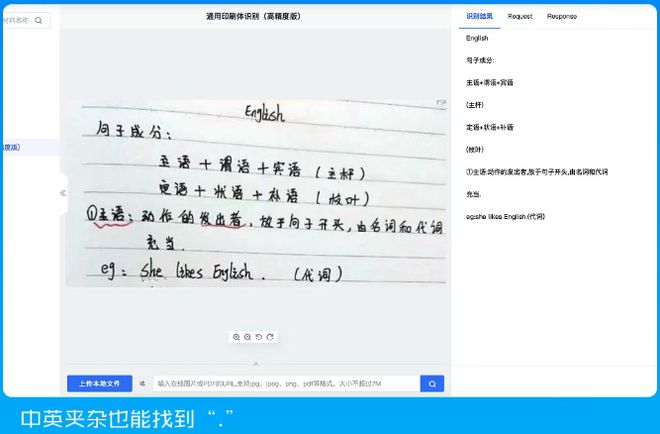 材料名称
通用印刷体识别（高精度版）
识别结果 Request Response
度版)
English
句子成分：
主语＋谓语＋宾语（主杆）
定语＋状语＋补语（枝叶）
①主语：动作的发出者，放于句子开头，由名词和代词
充当.
eg：she likes English.（代词）
English
句子成分:
主语+谓语+宾语
(主杆)
定语+状语+补语
(枝叶)
①主语:动作的发出者,放于句子开头,由名词和代词
充当.
eg:she likes English.(代词)
上传本地文件 或 输入在线图片或PDF的URL,支持jpg、jpeg、png、pdf等格式，大小不超过7M
中英夹杂也能找到“.”